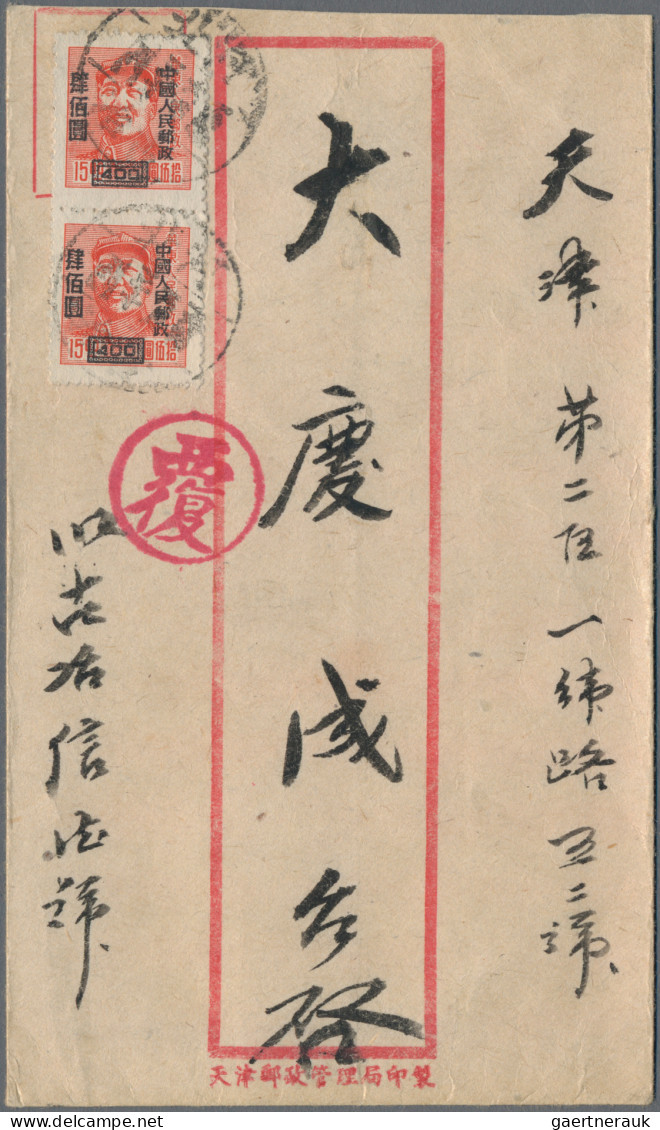 天津第二区一纬路五二號
大慶成台啓
覆
信 號
中國人民郵政
肆佰圓
400
15
拾伍圓
中國人民郵政
肆佰圓
400
15
拾伍圓
天津郵政管理局印製
gaertnerauk / delcampe.net